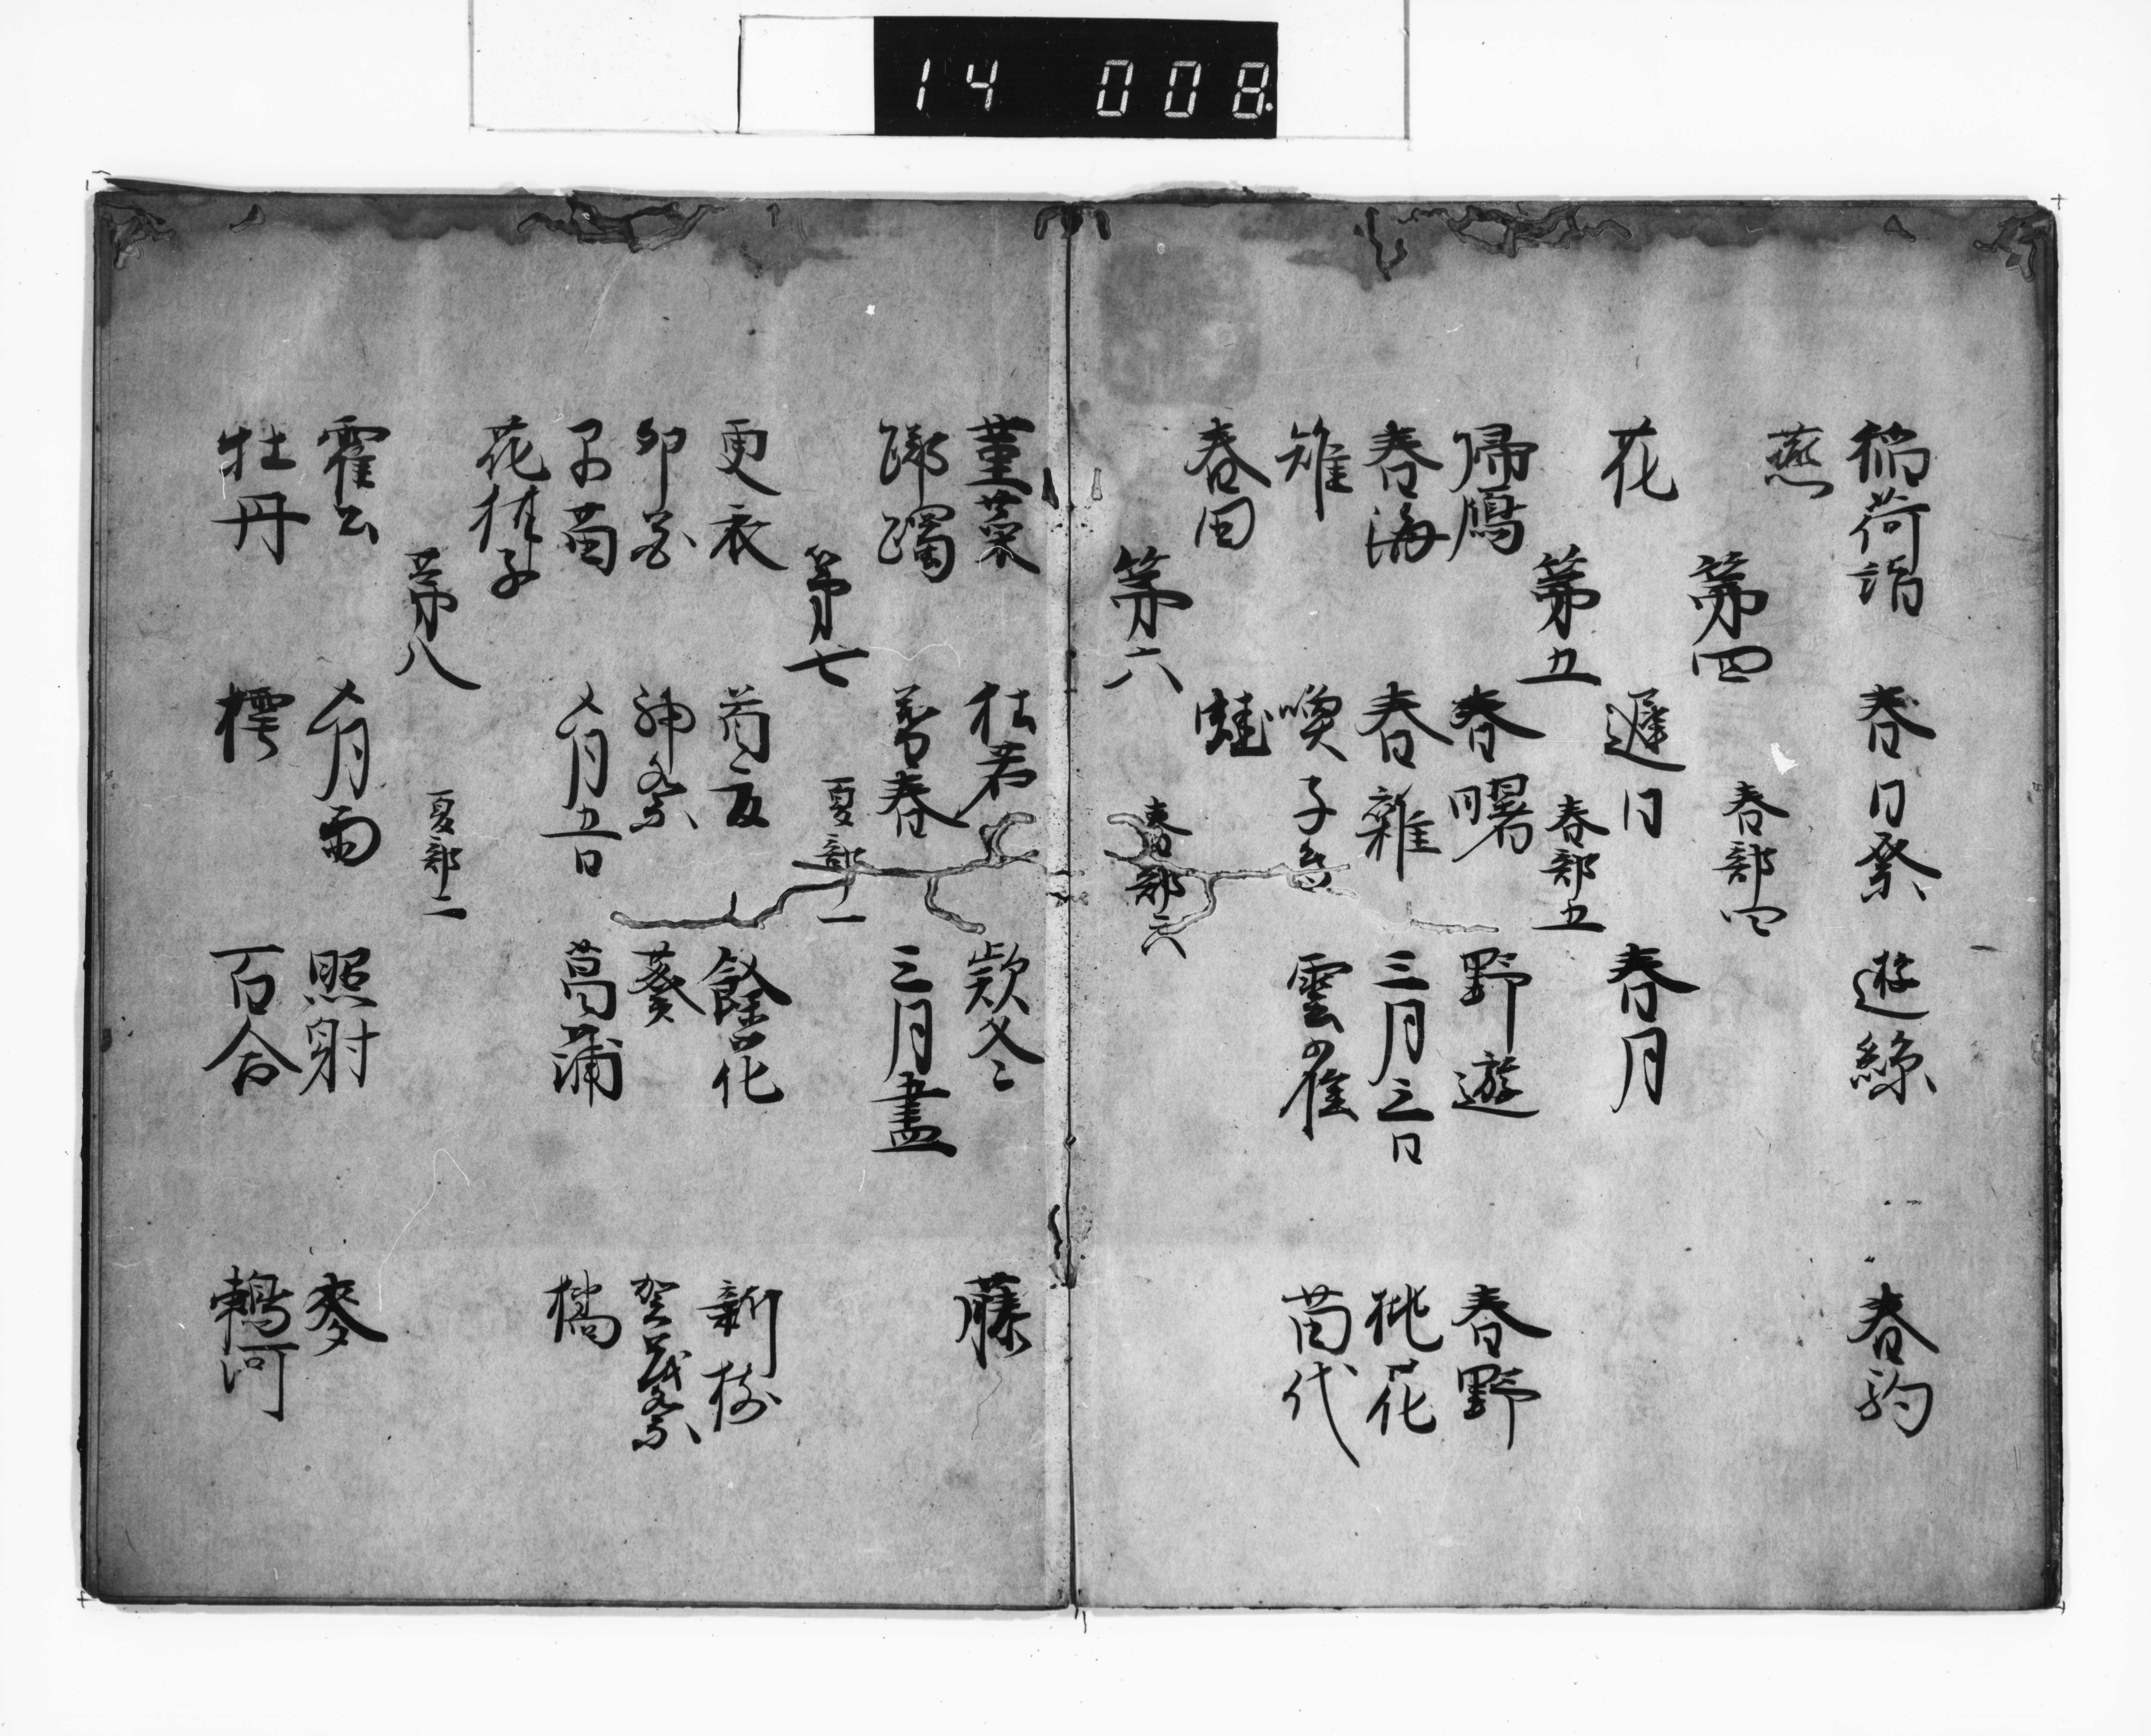 14 008
稲荷詣 春日祭 遊絲 春駒
燕
第四 春部四
花 遲日 春月
第五 春部五
帰鴈 春曙 野遊 春野
春海 春雜 三月三日 桃花
雉 喚子鳥 雲雀 苗代
春田 蛙
第六 春部六
菫菜 杜若 欵冬 藤
躑躅 暮春 三月盡
第七 夏部一
更衣 首夏 餘花 新樹
卯花 神祭 葵 賀茂祭
早苗 五月五日 菖蒲 橘
花橘
第八 夏部二
霍公 五月雨 照射 麥
牡丹 樗 百合 鵜河